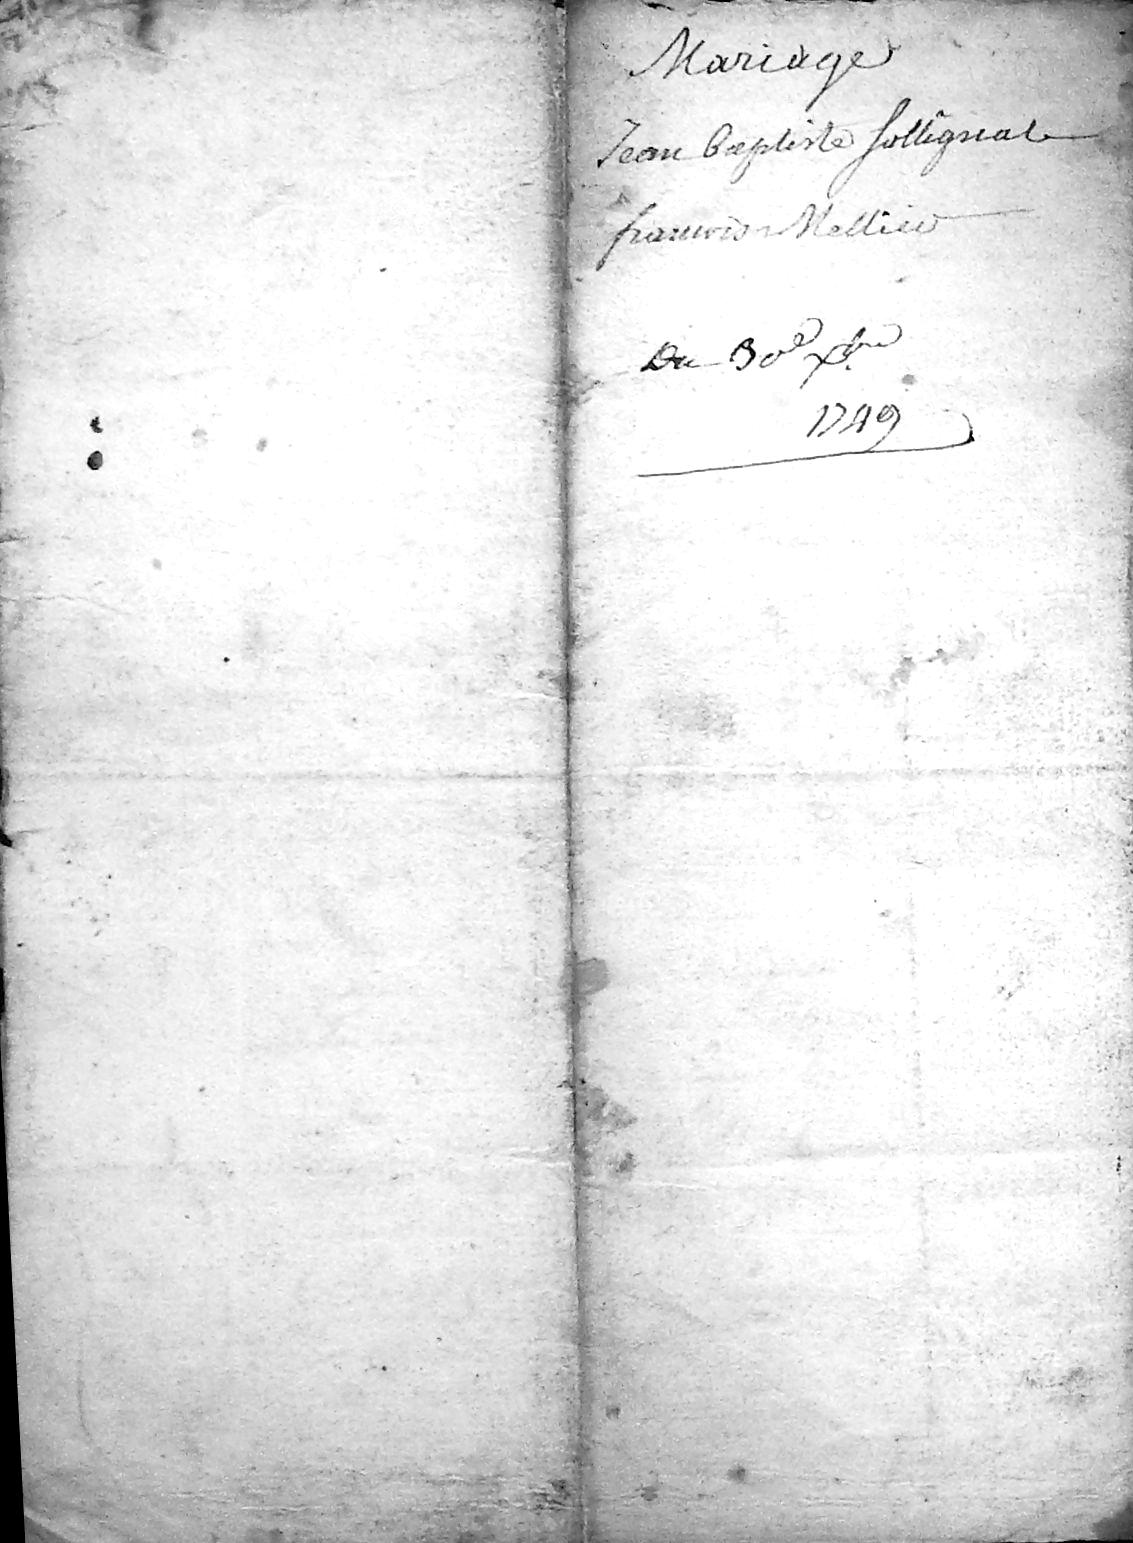 Mariage
Jean Baptiste Sollignat
francois Mellier
Du 30e xbre
1749